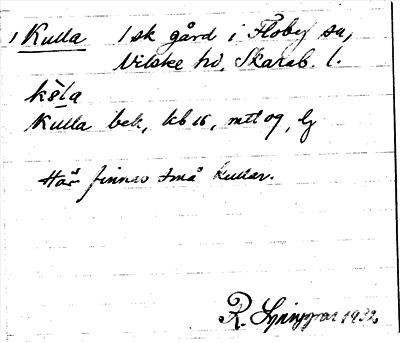 1 Kulla 1 sk gård i Floby sn,
Vilske hd, Skarab. l.
Kulla bek, kb 16, mtl 09, Lg
Här finnas små kullar.
R. 1932